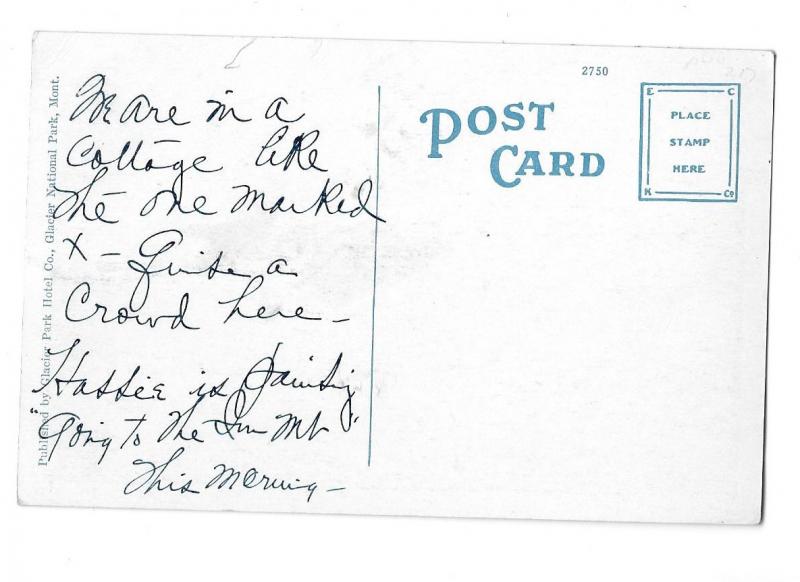 Published by Glacier Park Hotel Co., Glacier National Park, Mont.
We are in a
Cottage like
the one marked
X – Quite a
Crowd here –
Hattie is painting
"Going to the Sun Mt"
This morning –
2750
POST
CARD
E C
PLACE
STAMP
HERE
K Co